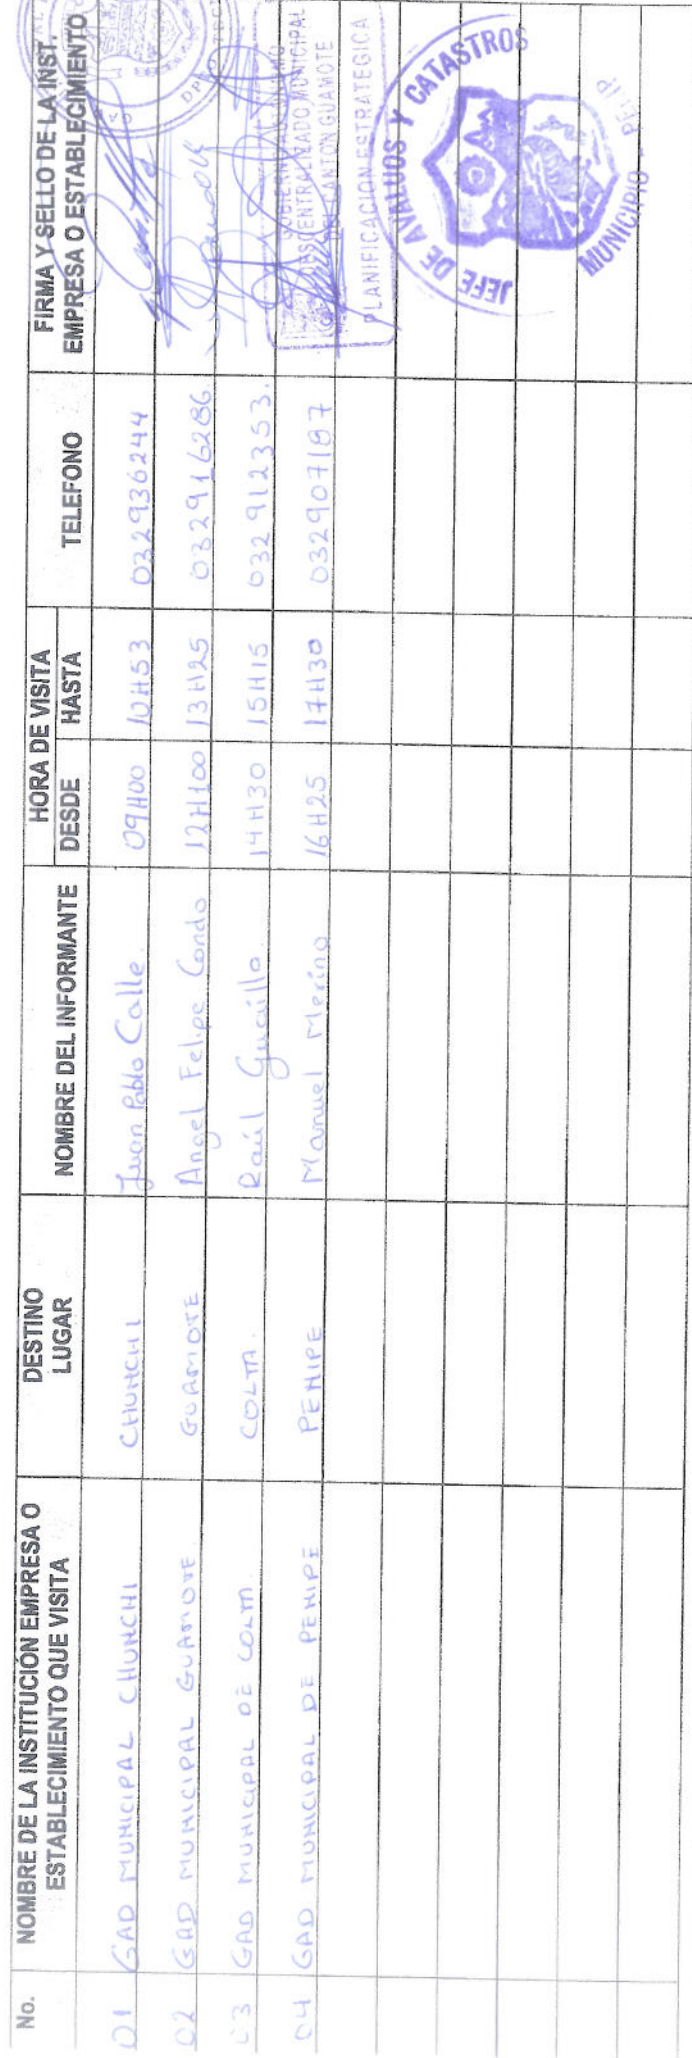 No. NOMBRE DE LA INSTITUCIÓN EMPRESA O ESTABLECIMIENTO QUE VISITA DESTINO LUGAR NOMBRE DEL INFORMANTE HORA DE VISITA DESDE HASTA TELEFONO FIRMA Y SELLO DE LA INST. EMPRESA O ESTABLECIMIENTO
01 GAD MUNICIPAL CHUNCHI CHUNCHI Juan Pablo Calle 09H00 10H53 032936244
02 GAD MUNICIPAL GUAMOTE GUAMOTE Angel Felipe Condo 12H100 13H25 032916286
03 GAD MUNICIPAL DE COLTA. COLTA. Raúl Guaillo. 14H30 15H15 032912353.
04 GAD MUNICIPAL DE PENIPE PENIPE Manuel Merino 16H25 17H30 032907187
DESCENTRALIZADO MUNICIPAL
DEL CANTON GUAMOTE
PLANIFICACION ESTRATEGICA
JEFE DE AVALUOS Y CATASTROS
MUNICIPIO - PENIP